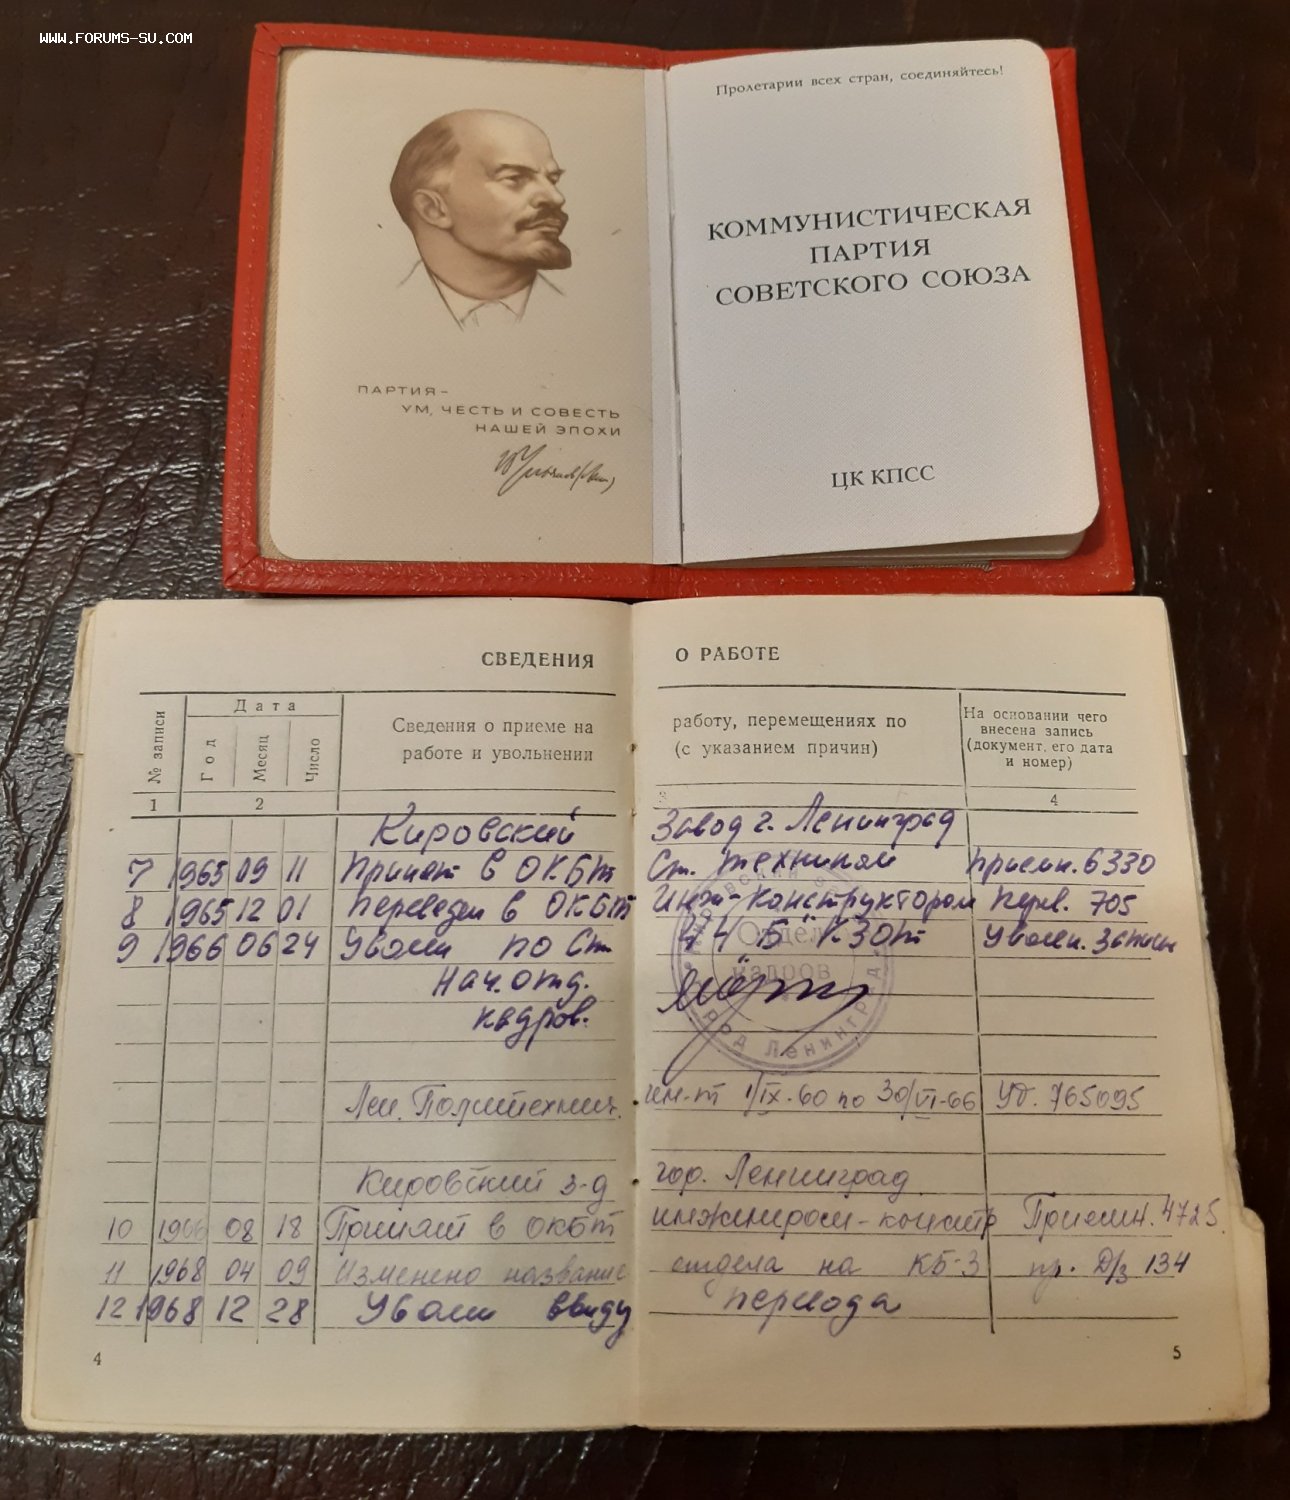 WWW.FORUMS-SU.COM
Пролетарии всех стран, соединяйтесь!
КОММУНИСТИЧЕСКАЯ
ПАРТИЯ
СОВЕТСКОГО СОЮЗА
ПАРТИЯ–
УМ, ЧЕСТЬ И СОВЕСТЬ
НАШЕЙ ЭПОХИ
ЦК КПСС
СВЕДЕНИЯ О РАБОТЕ
№ записи
Дата
Год
Месяц
Число
Сведения о приеме на работу, перемещениях по
работе и увольнении (с указанием причин)
На основании чего
внесена запись
(документ, его дата
и номер)
1 2 4
Кировский завод г. Ленинград
7 1965 09 11 Принят в ОКБТ Ст. техником приемн. 6330
8 1965 12 01 Переведен в ОКБТ Инж-конструктором перев. 705
9 1966 06 24 Уволен по Ст. 44 Б КЗОТ Уволен. записк
Нач. отд.
кадров.
Отдел
кадров
Ленинград
Лен. Политехнич. ин-т 1/IX-60 по 30/VI-66 Уд. 765095
Кировский з-д гор. Ленинград
10 1966 08 18 Принят в ОКБТ инженером-констр Приемн. 4725
11 1968 04 09 Изменено название отдела на КБ-3 пр. Д/з 134
12 1968 12 28 Уволен ввиду перевода
4
5